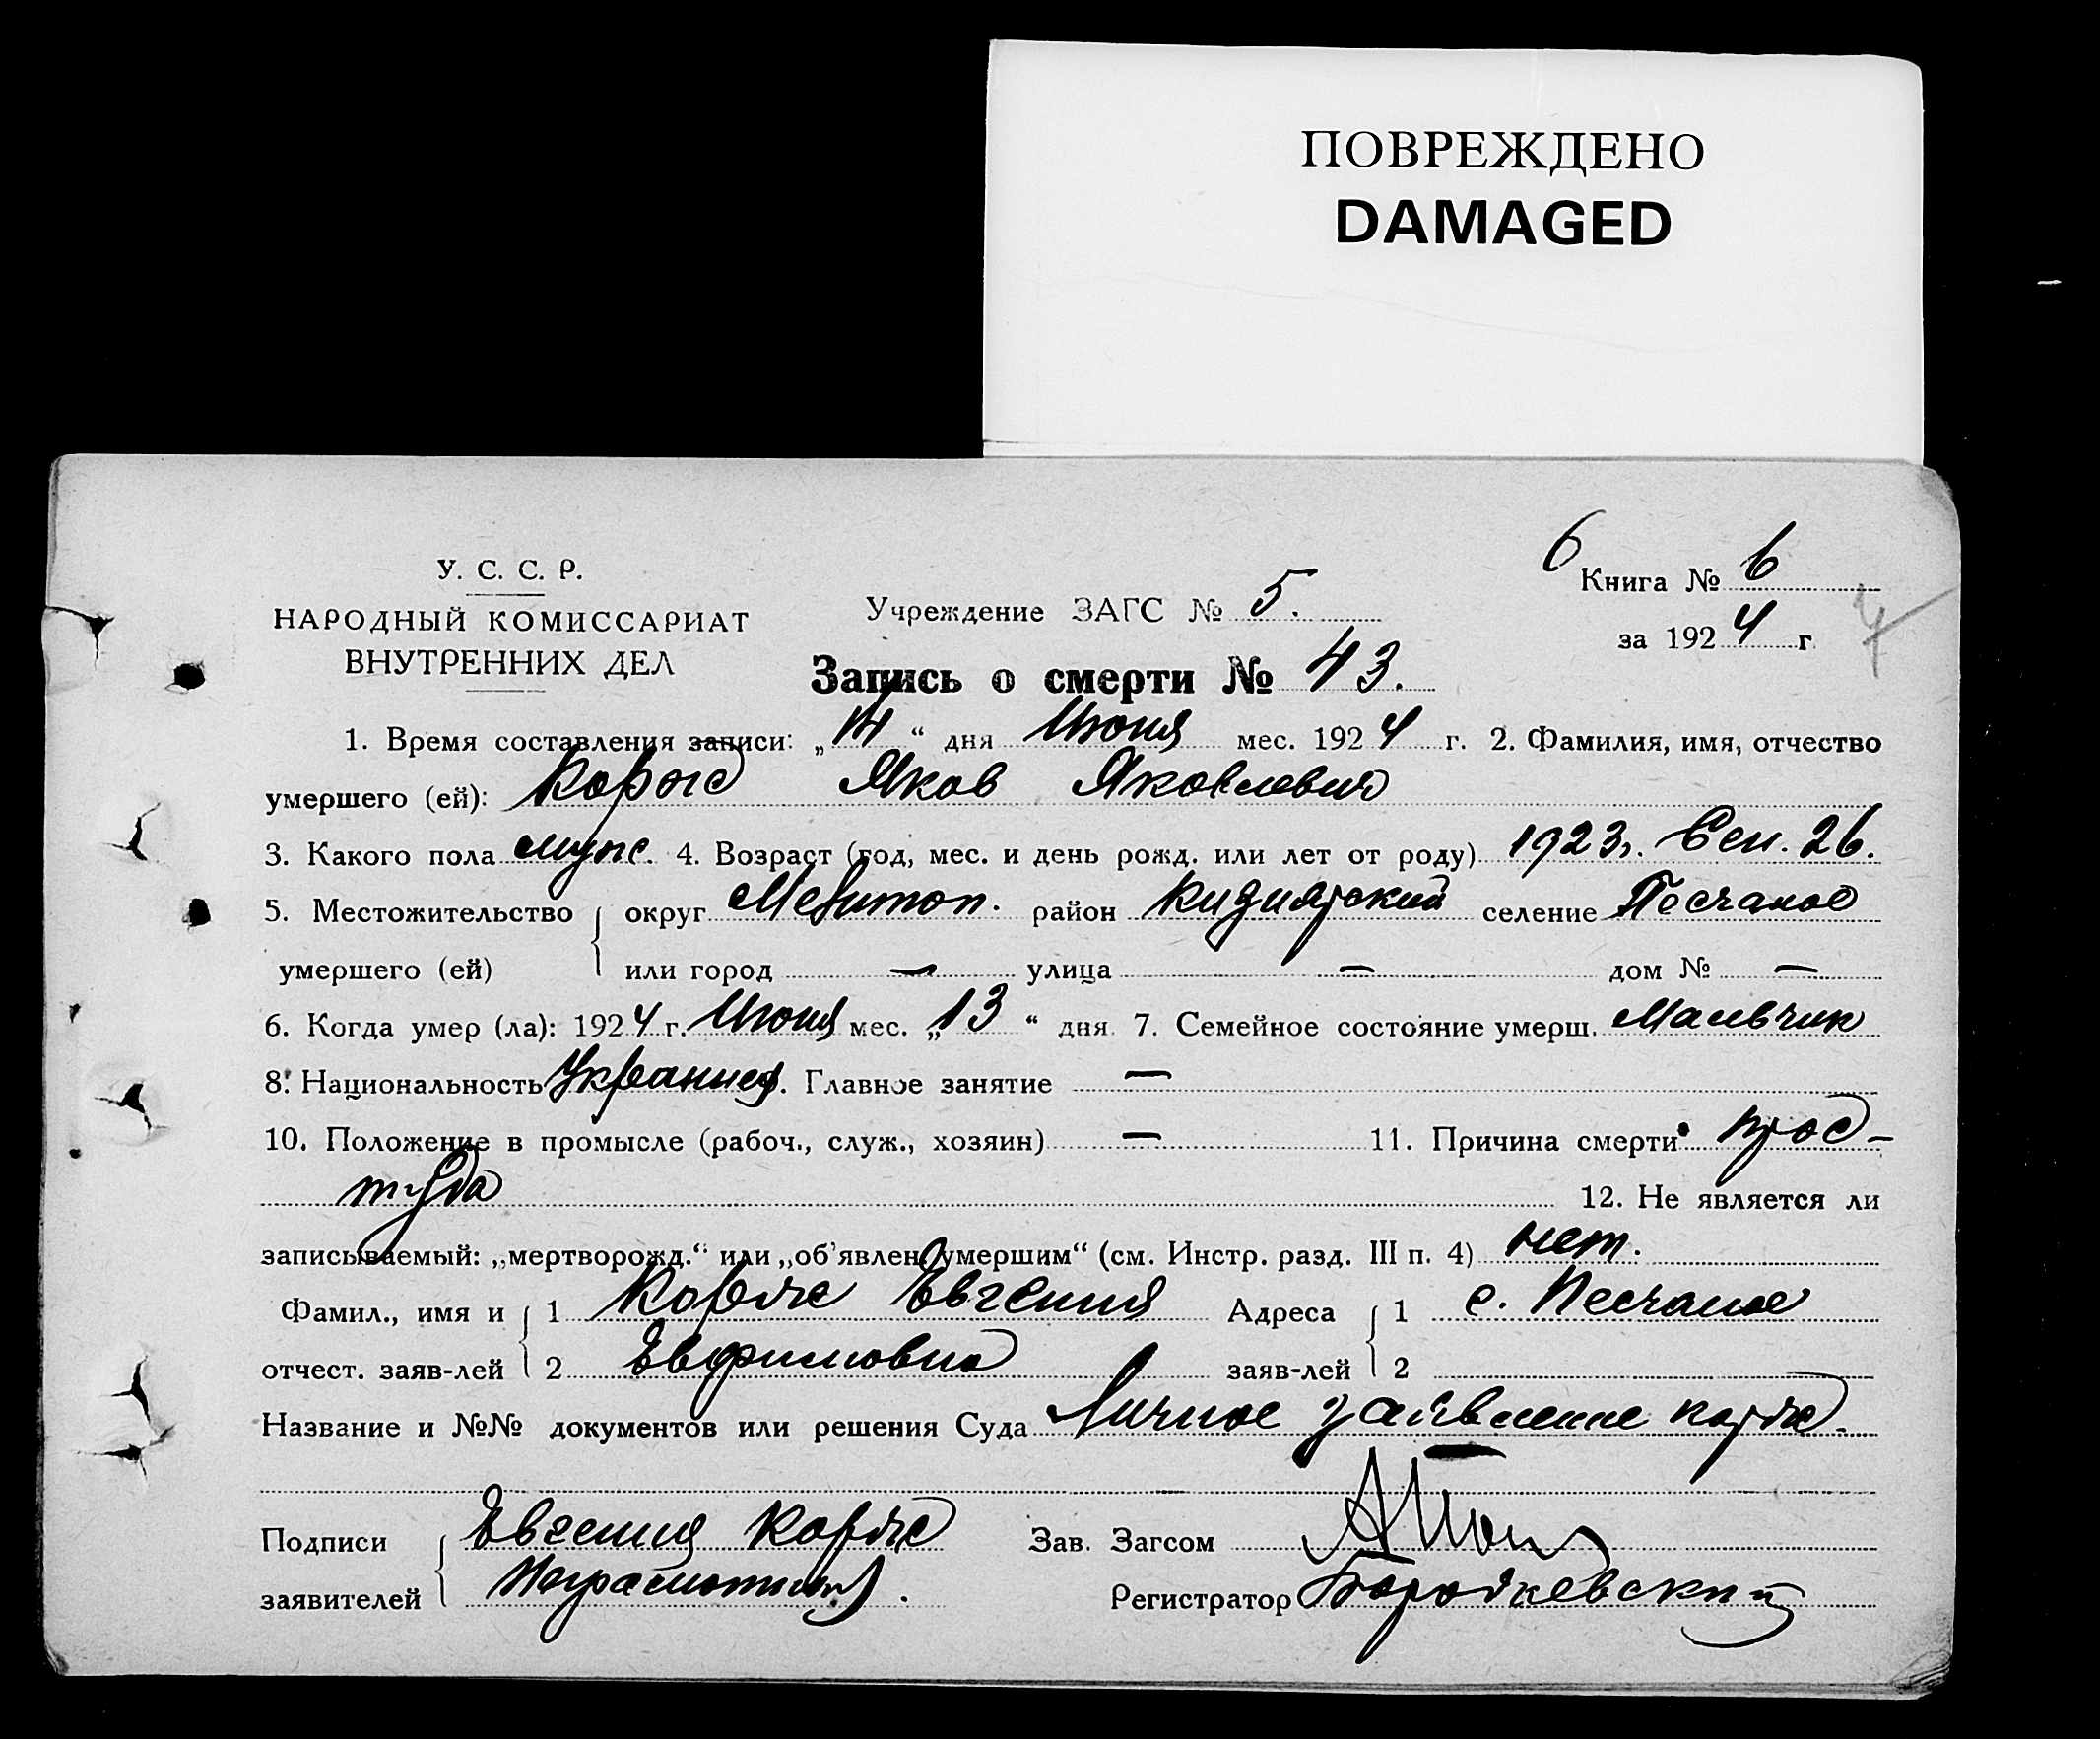 ПОВРЕЖДЕНО
DAMAGED
6
У. С. С. Р.
НАРОДНЫЙ КОМИССАРИАТ
ВНУТРЕННИХ ДЕЛ
Учреждение ЗАГС № 5.
Книга № 6
за 1924 г.
Запись о смерти № 43.
1. Время составления записи: „14“ дня Июня мес. 1924 г. 2. Фамилия, имя, отчество
умершего (ей): Корж Яков Яковлевич
3. Какого пола муж. 4. Возраст (год, мес. и день рожд. или лет от роду) 1923г. Сен. 26.
5. Местожительство округ Мелитоп. район Кизиярский селение Песчаное
умершего (ей) или город — улица — дом № —
6. Когда умер (ла): 1924 г. Июня мес. „13“ дня. 7. Семейное состояние умерш. Мальчик
8. Национальность Украинец. Главное занятие —
10. Положение в промысле (рабоч., служ., хозяин) — 11. Причина смерти прос-
туда 12. Не является ли
записываемый: „мертворожд.“ или „об'явлен. умершим“ (см. Инстр. разд. III п. 4) нет.
Фамил., имя и 1 Корж Евгения Адреса 1 с. Песчаное
отчест. заяв-лей 2 Евфимовна заяв-лей 2
Название и №№ документов или решения Суда Личное заявление Корж.
Подписи Евгения Корж Зав. Загсом
заявителей Регистратор